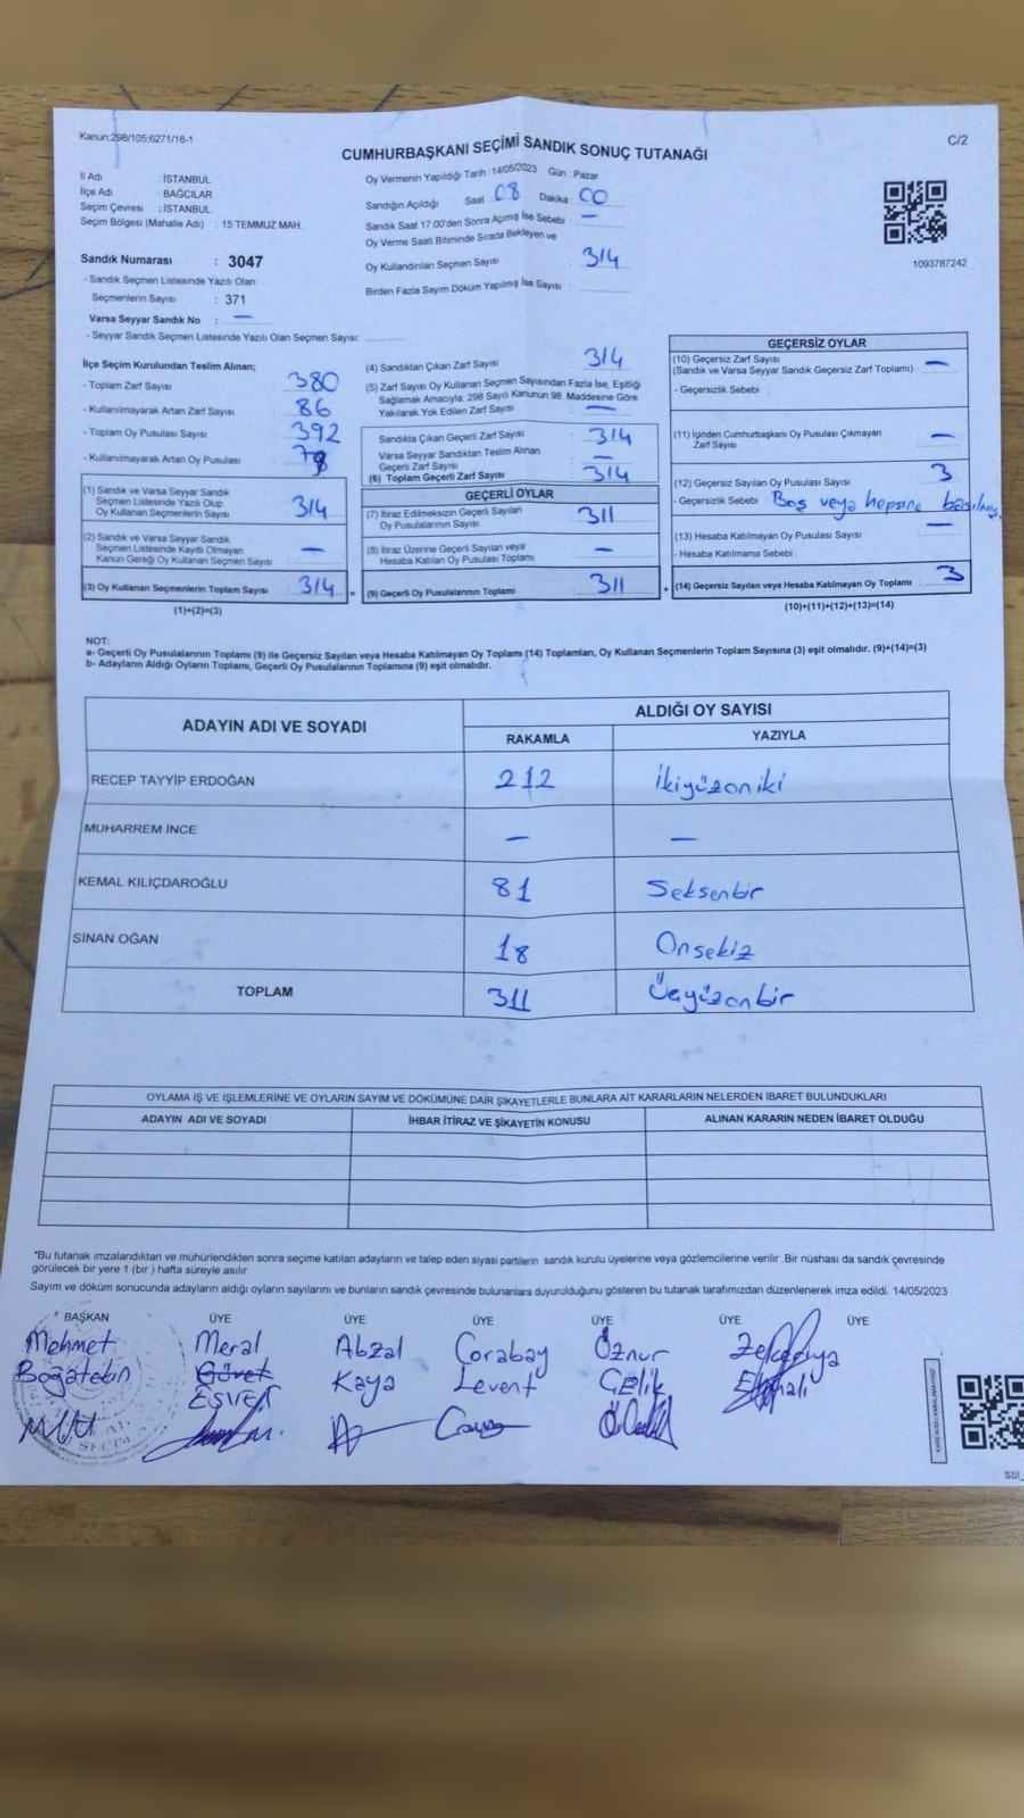 Kanun:298/105;6271/16-1
C/2
CUMHURBAŞKANI SEÇİMİ SANDIK SONUÇ TUTANAĞI
İl Adı : İSTANBUL
İlçe Adı : BAĞCILAR
Seçim Çevresi : İSTANBUL
Seçim Bölgesi (Mahalle Adı) : 15 TEMMUZ MAH.
Sandık Numarası : 3047
- Sandık Seçmen Listesinde Yazılı Olan
Seçmenlerin Sayısı : 371
Varsa Seyyar Sandık No : —
- Seyyar Sandık Seçmen Listesinde Yazılı Olan Seçmen Sayısı:
Oy Vermenin Yapıldığı Tarih :14/05/2023 Gün : Pazar
Sandığın Açıldığı Saat 08 Dakika : 00
Sandık Saat 17.00'den Sonra Açılmış İse Sebebi : —
Oy Verme Saati Bitiminde Sırada Bekleyen ve
Oy Kullandırılan Seçmen Sayısı 314
Birden Fazla Sayım Döküm Yapılmış İse Sayısı
1093787242
İlçe Seçim Kurulundan Teslim Alınan;
- Toplam Zarf Sayısı 380
- Kullanılmayarak Artan Zarf Sayısı 86
- Toplam Oy Pusulası Sayısı 392
- Kullanılmayarak Artan Oy Pusulası
(1) Sandık ve Varsa Seyyar Sandık
Seçmen Listesinde Yazılı Olup
Oy Kullanan Seçmenlerin Sayısı 314
(2) Sandık ve Varsa Seyyar Sandık
Seçmen Listesinde Kaydı Olmayan
Kanun Gereği Oy Kullanan Seçmen Sayısı —
(3) Oy Kullanan Seçmenlerin Toplam Sayısı 314
(1)+(2)=(3)
(4) Sandıktan Çıkan Zarf Sayısı 314
(5) Zarf Sayısı Oy Kullanan Seçmen Sayısından Fazla İse, Eşitliği
Sağlamak Amacıyla; 298 Sayılı Kanunun 98. Maddesine Göre
Yakılarak Yok Edilen Zarf Sayısı —
Sandıkta Çıkan Geçerli Zarf Sayısı 314
Varsa Seyyar Sandıktan Teslim Alınan
Geçerli Zarf Sayısı —
(6) Toplam Geçerli Zarf Sayısı 314
GEÇERLİ OYLAR
(7) İtiraz Edilmeksizin Geçerli Sayılan
Oy Pusulalarının Sayısı 311
(8) İtiraz Üzerine Geçerli Sayılan veya
Hesaba Katılan Oy Pusulası Toplamı —
(9) Geçerli Oy Pusulalarının Toplamı 311
GEÇERSİZ OYLAR
(10) Geçersiz Zarf Sayısı
(Sandık ve Varsa Seyyar Sandık Geçersiz Zarf Toplamı) —
- Geçersizlik Sebebi :
(11) İçinden Cumhurbaşkanı Oy Pusulası Çıkmayan
Zarf Sayısı —
(12) Geçersiz Sayılan Oy Pusulası Sayısı 3
- Geçersizlik Sebebi : Boş veya hepsine basılmış
(13) Hesaba Katılmayan Oy Pusulası Sayısı —
- Hesaba Katılmama Sebebi :
(14) Geçersiz Sayılan veya Hesaba Katılmayan Oy Toplamı 3
(10)+(11)+(12)+(13)=(14)
NOT:
a- Geçerli Oy Pusulalarının Toplamı (9) ile Geçersiz Sayılan veya Hesaba Katılmayan Oy Toplamı (14) Toplamları, Oy Kullanan Seçmenlerin Toplam Sayısına (3) eşit olmalıdır. (9)+(14)=(3)
b- Adayların Aldığı Oyların Toplamı, Geçerli Oy Pusulalarının Toplamına (9) eşit olmalıdır.
ADAYIN ADI VE SOYADI
ALDIĞI OY SAYISI
RAKAMLA YAZIYLA
RECEP TAYYİP ERDOĞAN 212 İkiyüzoniki
MUHARREM İNCE — —
KEMAL KILIÇDAROĞLU 81 Seksenbir
SİNAN OĞAN 18 Onsekiz
TOPLAM 311 Üçyüzonbir
OYLAMA İŞ VE İŞLEMLERİNE VE OYLARIN SAYIM VE DÖKÜMÜNE DAİR ŞİKAYETLERLE BUNLARA AİT KARARLARIN NELERDEN İBARET BULUNDUKLARI
ADAYIN ADI VE SOYADI İHBAR İTİRAZ VE ŞİKAYETİN KONUSU ALINAN KARARIN NEDEN İBARET OLDUĞU
*Bu tutanak imzalandıktan ve mühürlendikten sonra seçime katılan adayların ve talep eden siyasi partilerin sandık kurulu üyelerine veya gözlemcilerine verilir. Bir nüshası da sandık çevresinde
görülecek bir yere 1 (bir) hafta süreyle asılır.
Sayım ve döküm sonucunda adayların aldığı oyların sayılarını ve bunların sandık çevresinde bulunanlara duyurulduğunu gösteren bu tutanak tarafımızdan düzenlenerek imza edildi. 14/05/2023
BAŞKAN ÜYE ÜYE ÜYE ÜYE ÜYE ÜYE
Mehmet Meral Abzal Çorabay Öznur
Boğatekin Kaya Levent Çelik